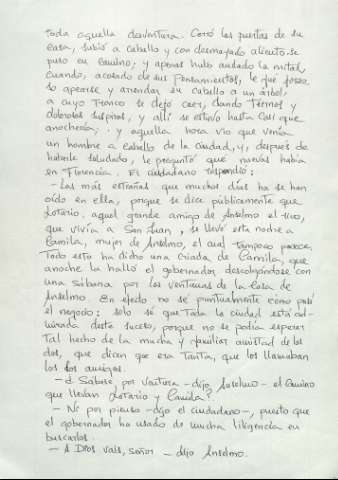 toda aquella desventura. Cerró las puertas de su
casa, subió a caballo y con desmayado aliento se
puso en camino; y apenas hubo andado la mitad,
cuando, acosado de sus pensamientos, le fue forzo-
so apearse y arrendar su caballo a un árbol,
a cuyo tronco se dejó caer, dando tiernos y
dolorosos suspiros, y allí se estuvo hasta casi que
anochecía; y aquella hora vio que venía
un hombre a caballo de la ciudad, y, después de
haberle saludado, le preguntó qué nuevas había
en Florencia. El ciudadano respondió:
- Las más extrañas que muchos días ha se han
oído en ella, porque se dice públicamente que
Lotario, aquel grande amigo de Anselmo el rico,
que vivía a San Juan, se llevó esta noche a
Camila, mujer de Anselmo, el cual tampoco parece.
Todo esto ha dicho una criada de Camila, que
anoche la halló el gobernador descolgándose con
una sábana por las ventanas de la casa de
Anselmo. En efecto no sé puntualmente cómo pasó
el negocio: sólo sé que toda la ciudad está ad-
mirada deste suceso, porque no se podía esperar
tal hecho de la mucha y familiar amistad de los
dos, que dicen que era tanta, que los llamaban
los dos amigos.
- ¿Sábese, por ventura - dijo Anselmo - el camino
que llevan Lotario y Camila?
- Ni por pienso - dijo el ciudadano -, puesto que
el gobernador ha usado de mucha diligencia en
buscarlos.
- A Dios vais, señor - dijo Anselmo.